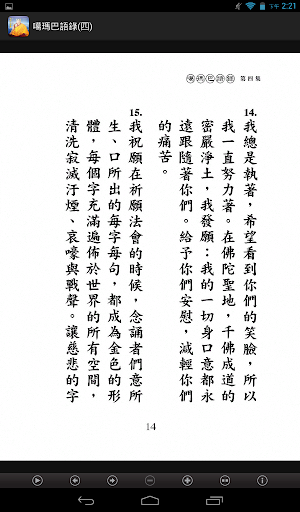 下午 2:21
噶瑪巴語錄(四)
噶瑪巴語錄 第四集
14.
我總是執著，希望看到你們的笑臉，所以
我一直努力著。在佛陀聖地，千佛成道的
密嚴淨土，我發願：我的一切身口意都永
遠跟隨著你們。給予你們安慰，減輕你們
的痛苦。
15.
我祝願在祈願法會的時候，念誦者們意所
生、口所出的每字每句，都成為金色的形
體，每個字充滿遍佈於世界的所有空間，
清洗寂滅汙煙、哀嚎與戰聲。讓慈悲的字
14